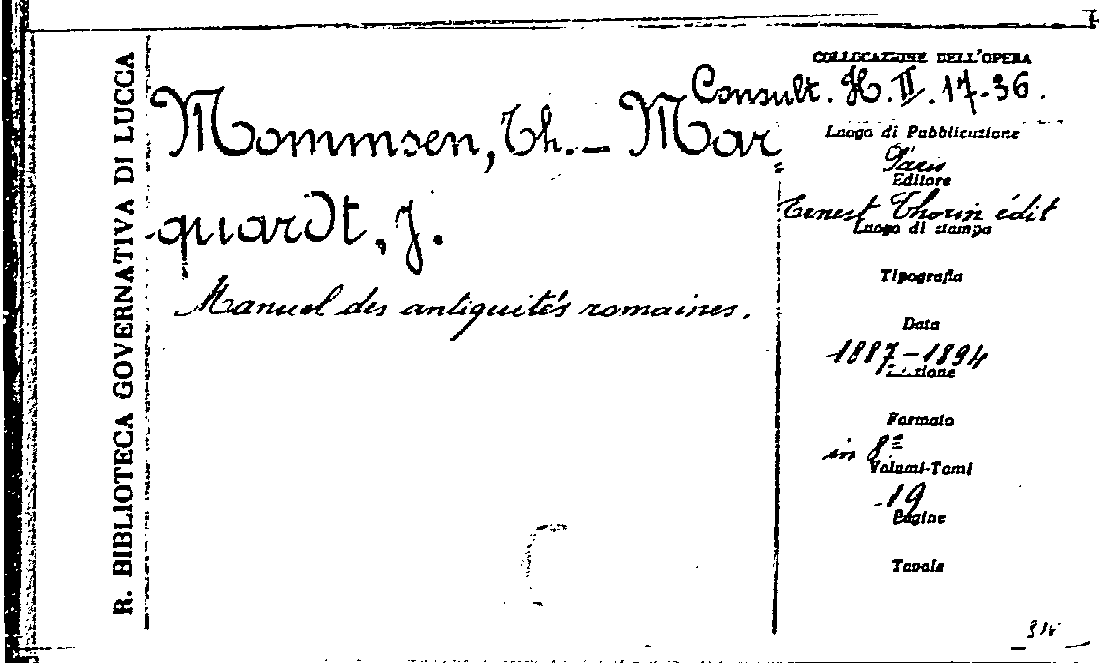 R. BIBLIOTECA GOVERNATIVA DI LUCCA
Mommsen, Th. - Mar
quardt, J.
Manuel des antiquités romaines.
COLLOCAZIONE DELL'OPERA
Consult. H. II. 17-36.
Luogo di Pubblicazione
Paris
Editore
Ernest Thorin édit
Luogo di stampa
Tipografia
Data
1887-1894
Edizione
Formato
in 8º
Volumi-Tomi
19
Pagine
Tavole